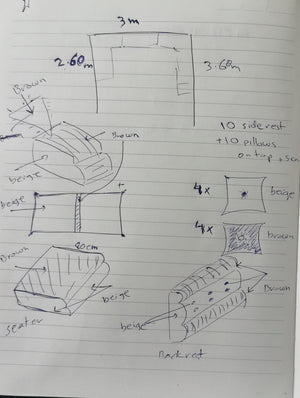 3m
2.60m
3.60m
Brown
Brown
beige
10 siderest
+10 pillows
on top + sea
beige
4x
beige
4x
brown
80cm
Brown
beige
seater
Brown
beige
Backrest